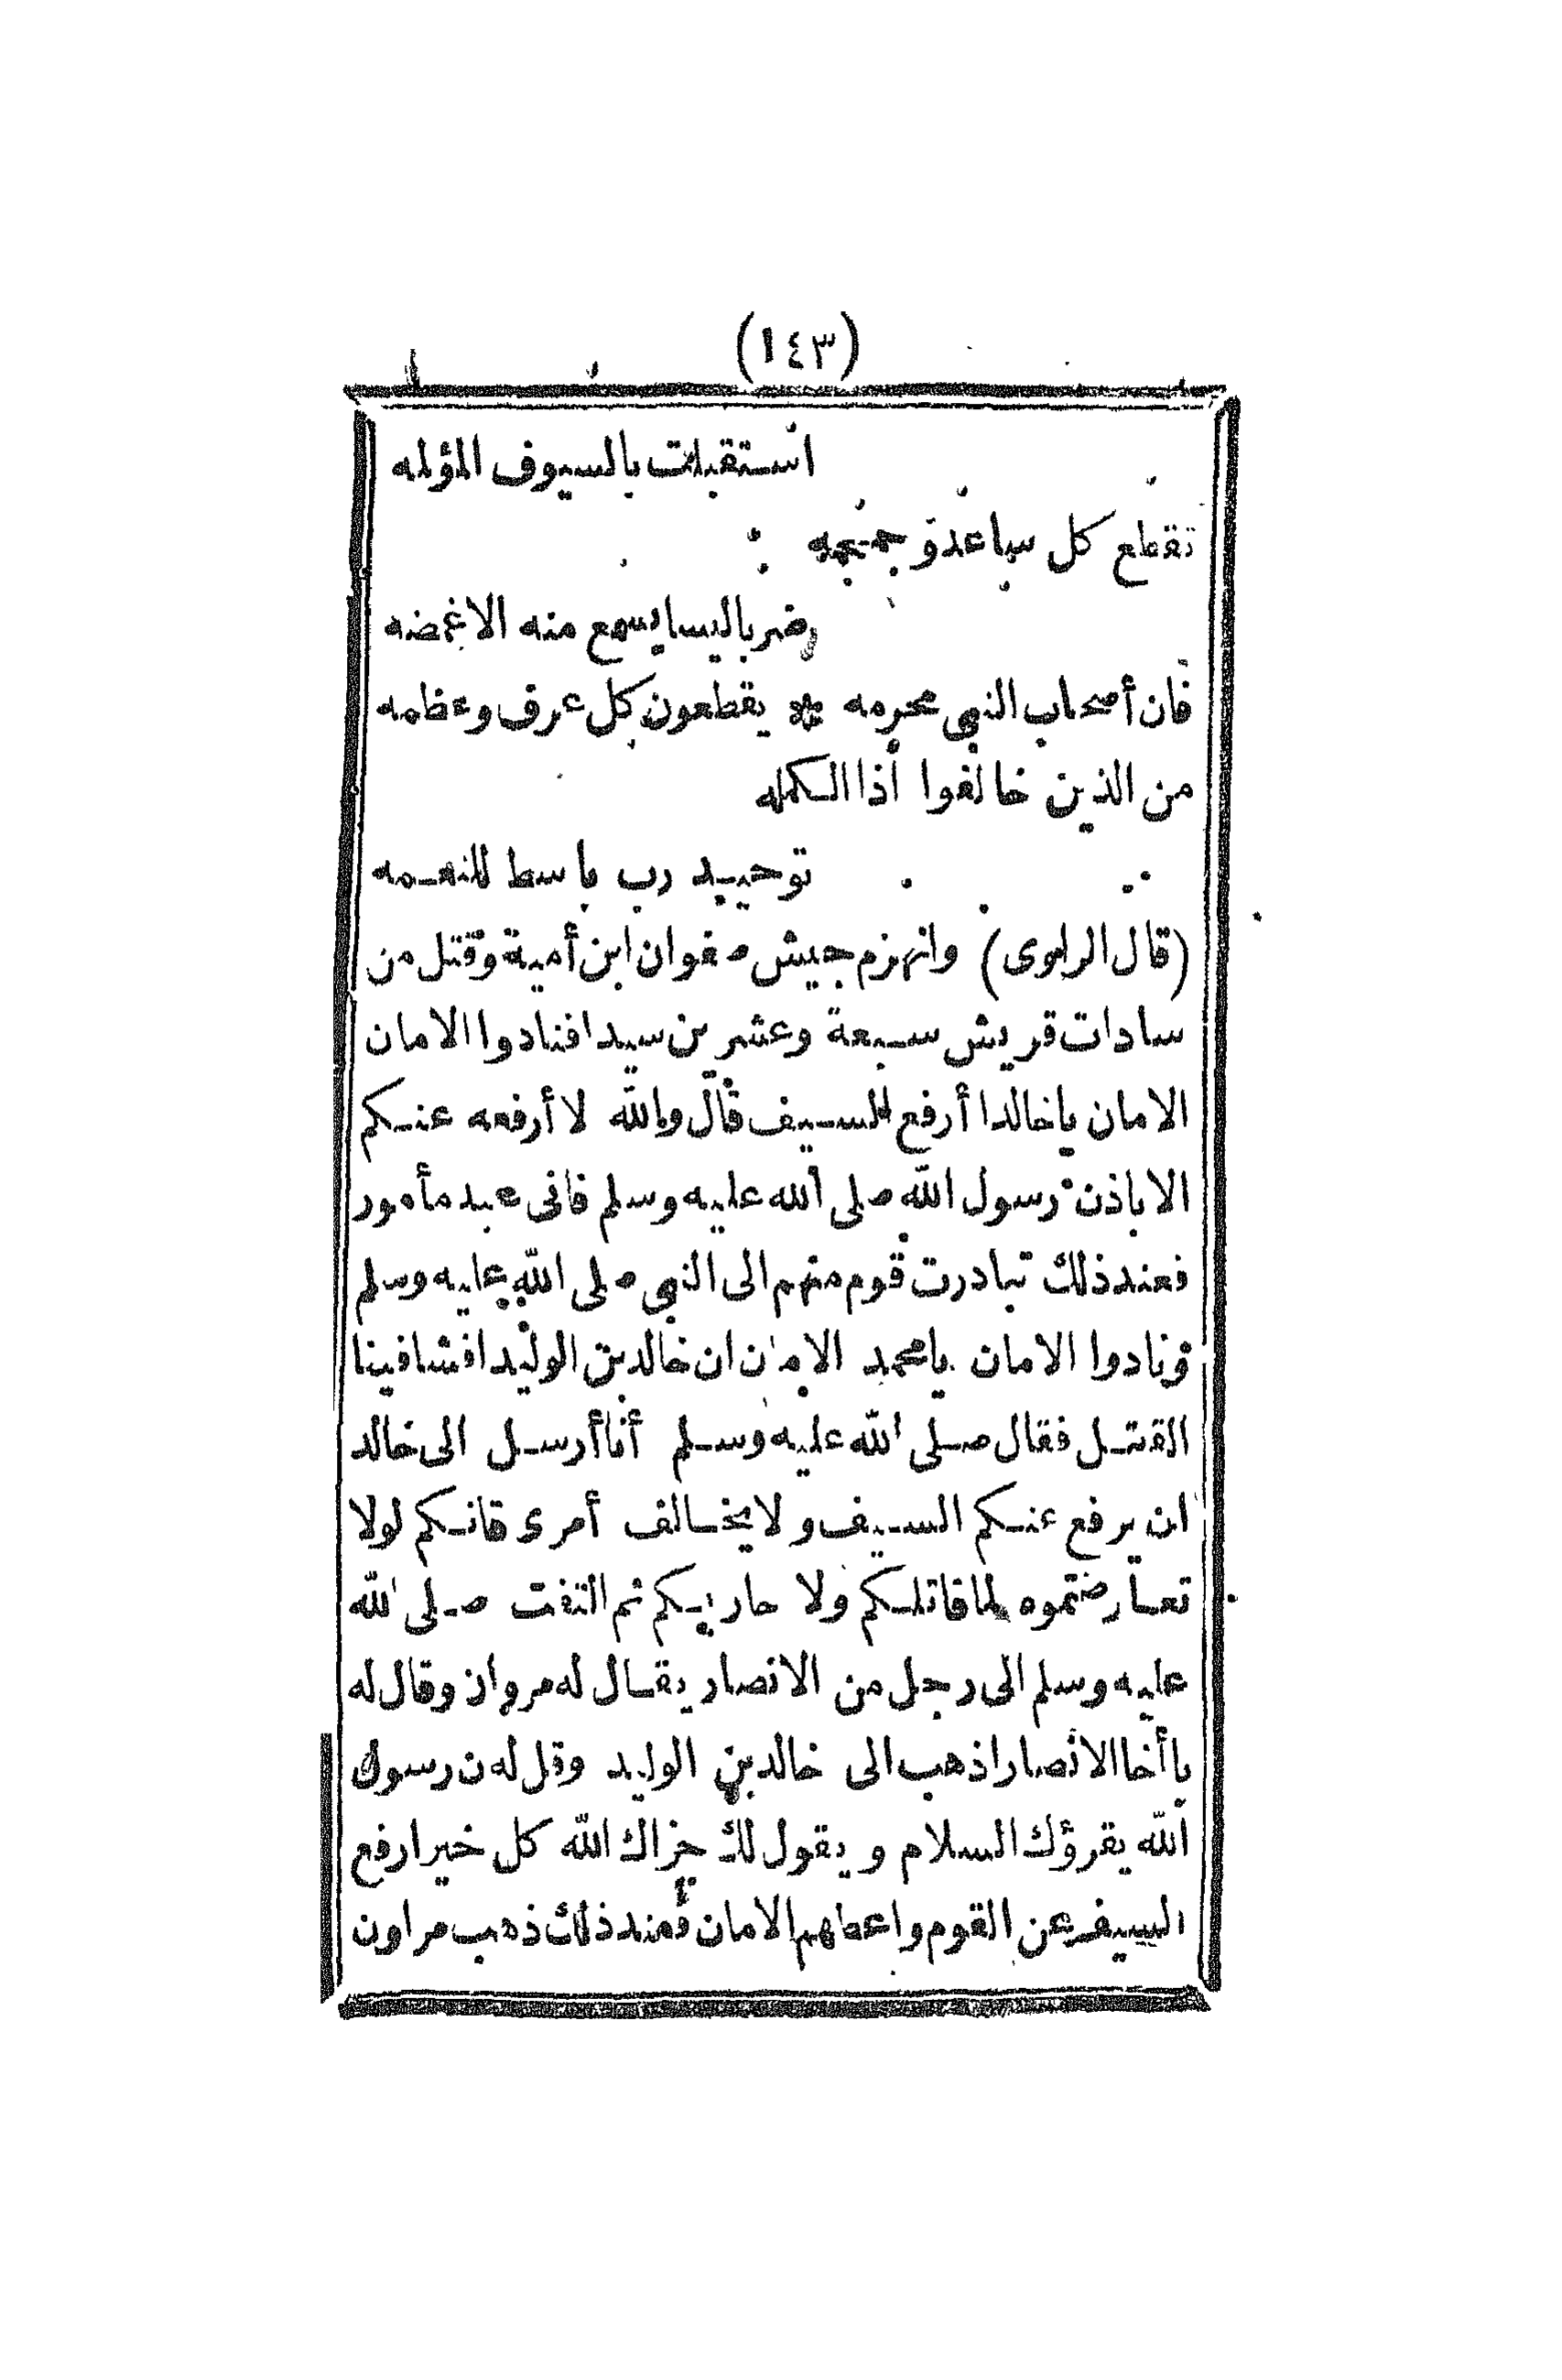 (١٤٣)
استقبلت بالسيوف المؤلمه
تقطع كل ساعد و جمجمه
ضربا ليسا يسمع منه الاغمضه
فان أصحاب النبي محرمه * يقطعون كل عرق وعظمه
من الذين خالفوا اذا الكمله
توحيد رب باسط للنعمه
(قال الراوى) وانهزم جيش صفوان ابن أمية وقتل من
سادات قريش سبعة وعشرين سيدا فنادوا الامان
الامان ياخالدا أرفع السيف قال والله لا أرفعه عنكم
الا باذن رسول الله صلى الله عليه وسلم فانى عبد مأمور
فعند ذلك تبادرت قوم منهم الى النبي صلى الله عليه وسلم
ونادوا الامان يامحمد الامان ان خالد بن الوليد افشا فينا
القتل فقال صلى الله عليه وسلم أنا أرسل الى خالد
ان يرفع عنكم السيف ولا يخالف أمرى فانكم لولا
تعارضتموه لما قاتلكم ولا حاربكم ثم التفت صلى الله
عليه وسلم الى رجل من الانصار يقال له مروان وقال له
يا أخا الانصار اذهب الى خالد بن الوليد وقل له ن رسول
الله يقرؤك السلام ويقول لك جزاك الله كل خير ارفع
السيف عن القوم واعطهم الامان فعند ذلك ذهب مراون